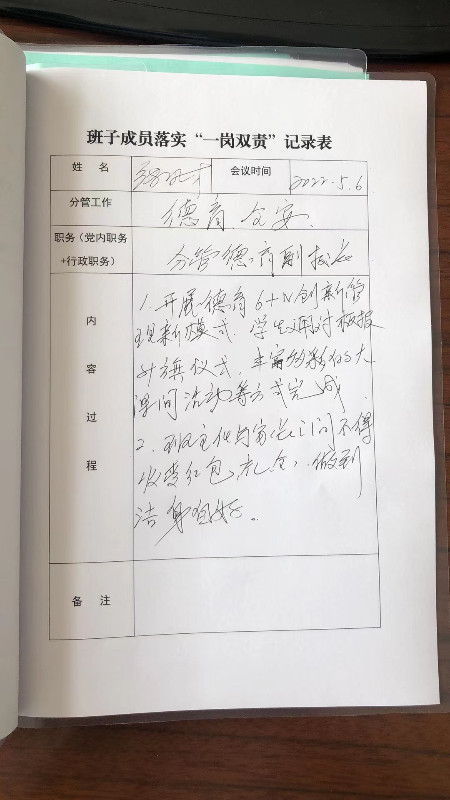 班子成员落实“一岗双责”记录表
姓 名
会议时间 2022.5.6
分管工作 德育、全安、
职务（党内职务+行政职务） 分管德育副校长
内容过程
1.开展德育6+N创新管
理新模式，学生
升旗仪式，丰富多彩的大
课间活动等方式完成
2.班主任与家长之间不得
收受红包、礼金，做到
洁身自好。
备 注